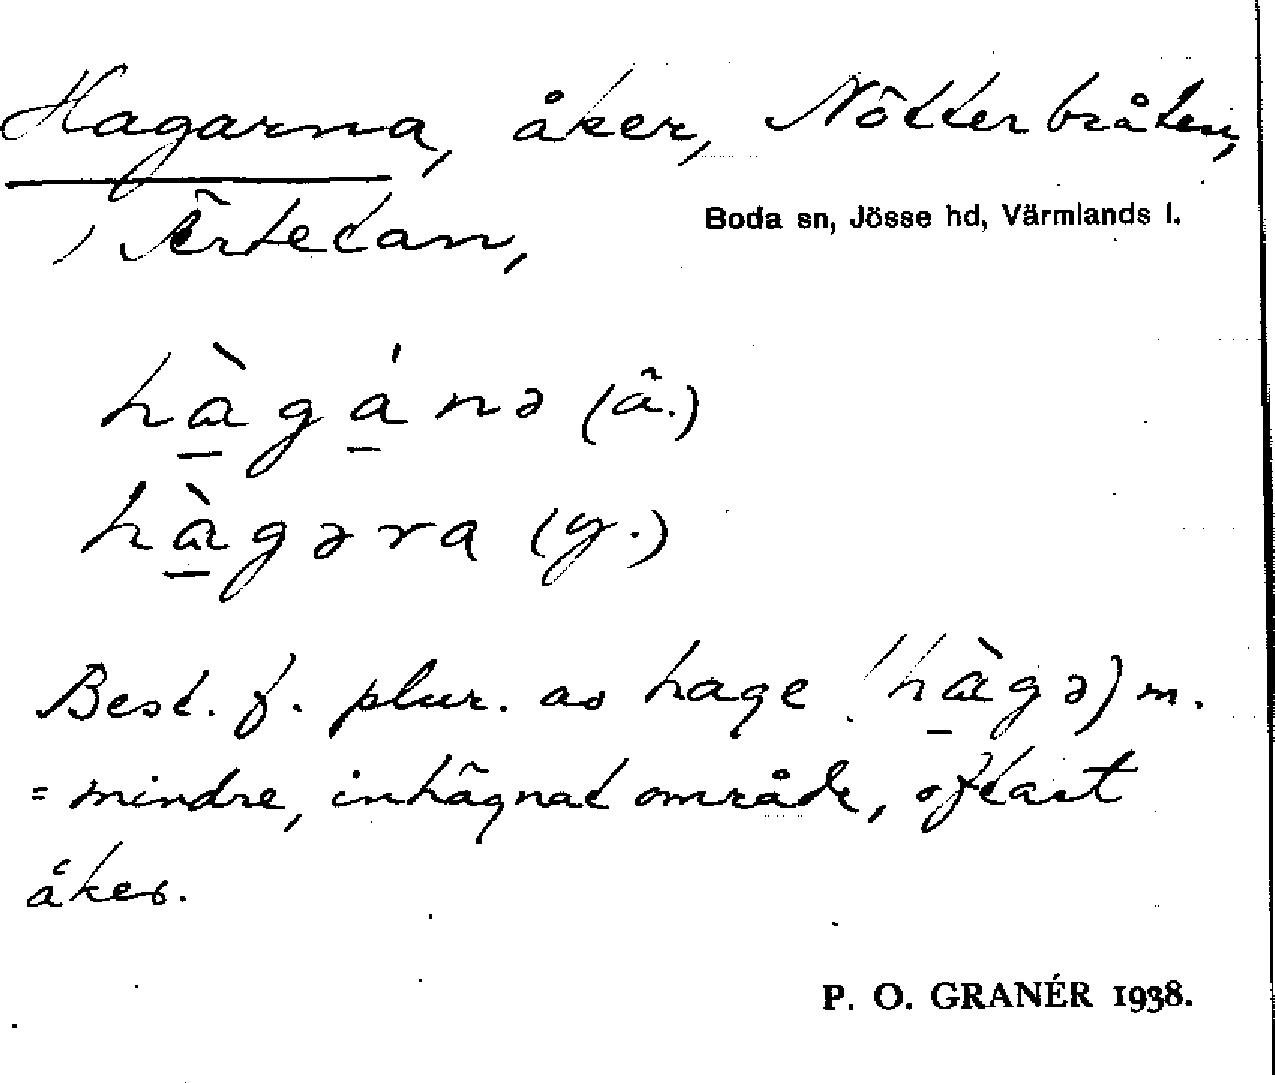 Hagarna, åker, Nötterbråten,
i Ärtetan,
Boda sn, Jösse hd, Värmlands l.
hàgánə (ä.)
hàgəra (y.)
Best. f. plur. av hage (hàgə) m.
= mindre, inhägnat område, oftast
åker.
P. O. GRANÉR 1938.